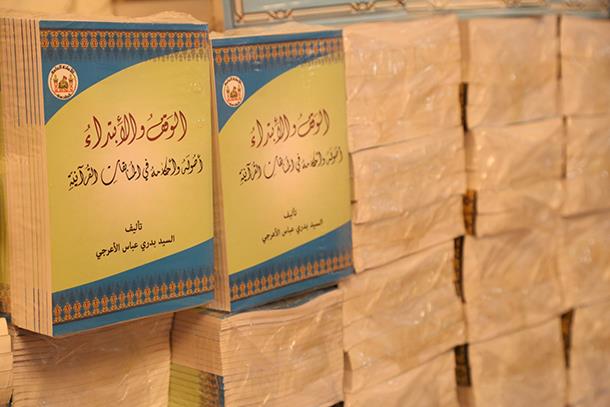 الوقف والأبتداء
أصوله وأحكامه في المقامات القرآنية
تأليف
السيد بدري عباس الأعرجي
الوقف والأبتداء
أصوله وأحكامه في المقامات القرآنية
تأليف
السيد بدري عباس الأعرجي